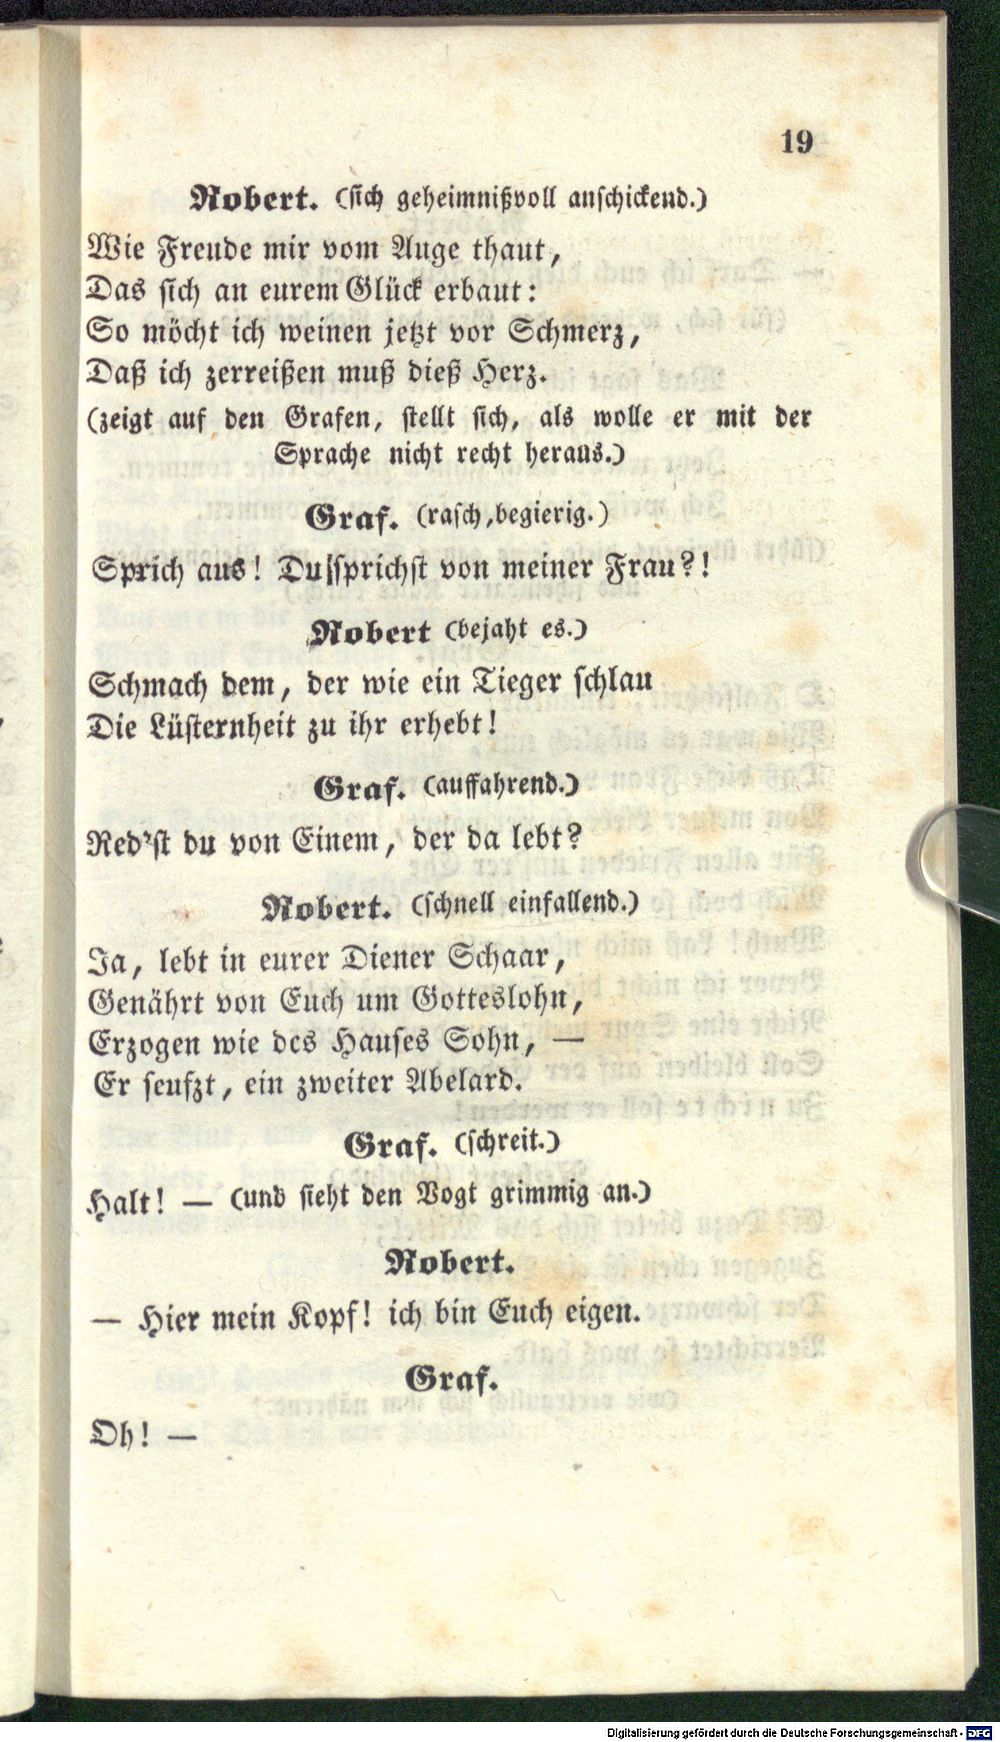 19
Robert. (sich geheimnißvoll anschickend.)
Wie Freude mir vom Auge thaut,
Das sich an eurem Glück erbaut:
So möcht ich weinen jetzt vor Schmerz,
Daß ich zerreißen muß dieß Herz.
(zeigt auf den Grafen, stellt sich, als wolle er mit der
Sprache nicht recht heraus.)
Graf. (rasch, begierig.)
Sprich aus! Du sprichst von meiner Frau?!
Robert (bejaht es.)
Schmach dem, der wie ein Tieger schlau
Die Lüsternheit zu ihr erhebt!
Graf. (auffahrend.)
Red'st du von Einem, der da lebt?
Robert. (schnell einfallend.)
Ja, lebt in eurer Diener Schaar,
Genährt von Euch um Gotteslohn,
Erzogen wie des Hauses Sohn, —
Er seufzt, ein zweiter Abelard.
Graf. (schreit.)
Halt! — (und sieht den Vogt grimmig an.)
Robert.
— Hier mein Kopf! ich bin Euch eigen.
Graf.
Oh! —
Digitalisierung gefördert durch die Deutsche Forschungsgemeinschaft - DFG